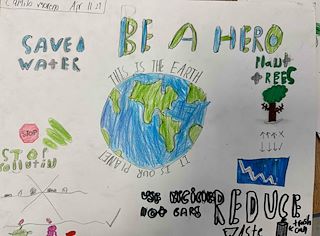 Camilo moreno Apr 11 21
SAVE
WATER
BE A HERO
THIS IS THE EARTH
IT IS OUR PLANET
Plant
TREES
STOP
STOP
Pollution
use bicicles
not cars
REDUCE
WASTE
trash
can